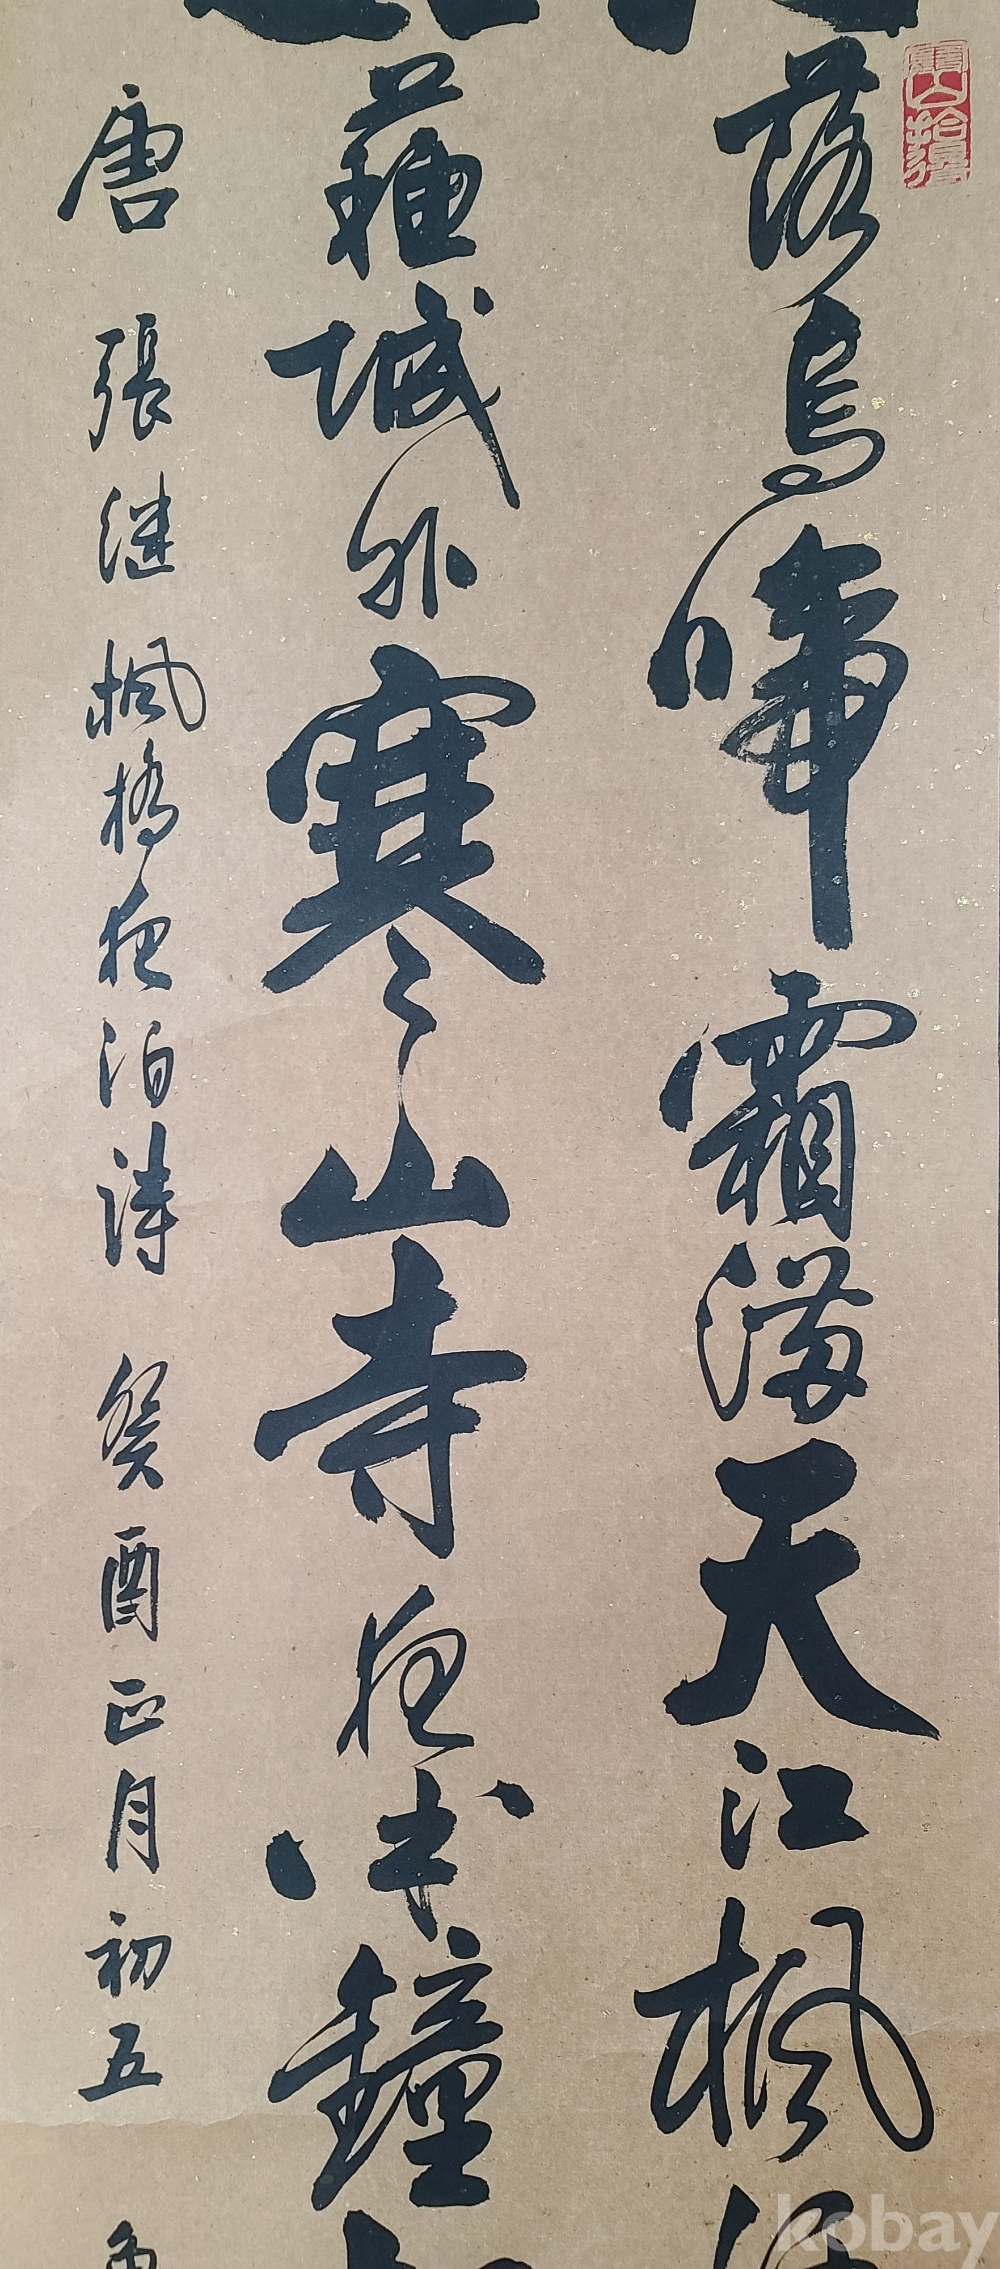 落烏啼霜滿天江楓
蘇城外寒山寺夜半鐘
唐 張継楓橋夜泊詩 癸酉正月初五
kobay